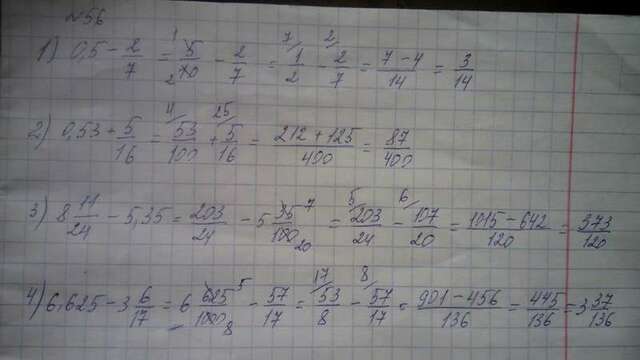 №56
1) 0,5 - 2/7 = 5/10 - 2/7 = 1/2 - 2/7 = 7-4/14 = 3/14
2) 0,53 + 5/16 = 53/100 + 5/16 = 212+125/400 = 87/400
3) 8 11/24 - 5,35 = 203/24 - 5 35/100 = 203/24 - 107/20 = 1015-642/120 = 373/120
4) 6,625 - 3 6/17 = 6 625/1000 - 57/17 = 53/8 - 57/17 = 901-456/136 = 445/136 = 3 37/136